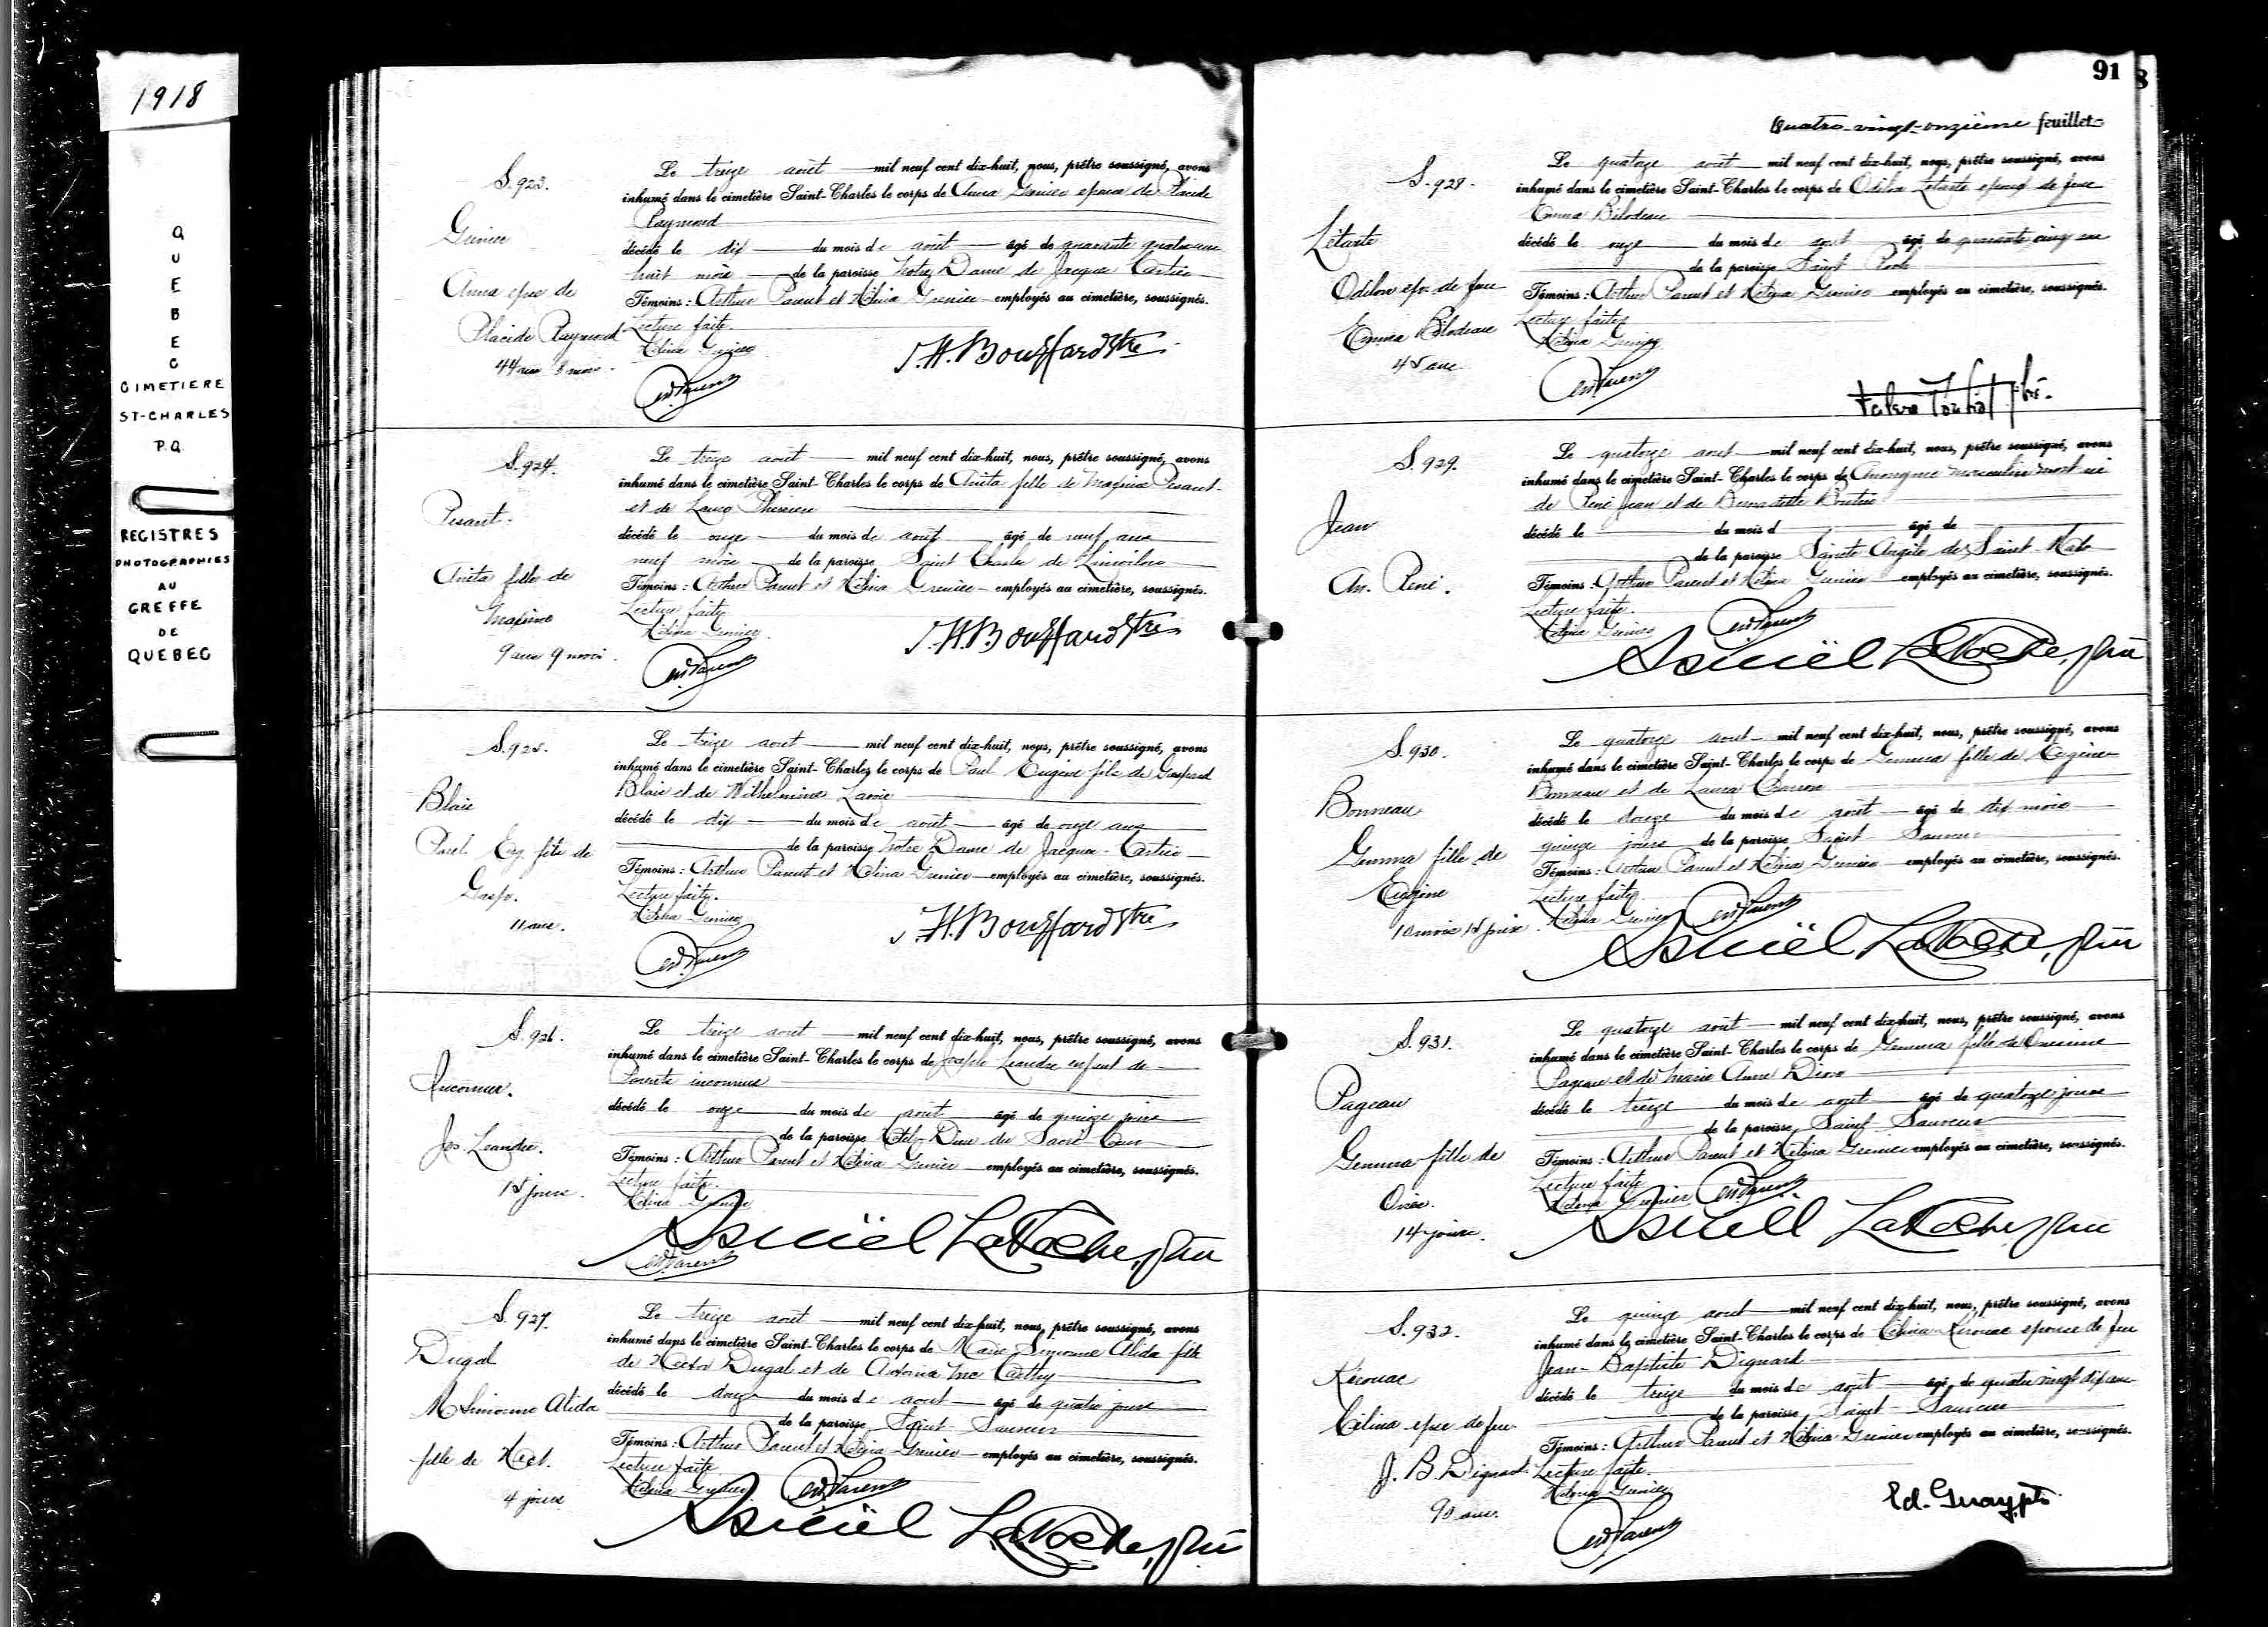 1918
QUEBEC
CIMETIERE
ST-CHARLES
P.Q.
REGISTRES
PHOTOGRAPHIES
AU
GREFFE
DE
QUEBEC
S. 923.
Grenier
Anna épse de
Placide Raymond
44 ans 8 mois.
Le treize août mil neuf cent dix-huit, nous, prêtre soussigné, avons
inhumé dans le cimetière Saint-Charles le corps de Anna Grenier épouse de Placide
Raymond
décédé le dix du mois de août âgé de quarante quatre ans
huit mois de la paroisse Notre Dame de Jacques Cartier
Témoins : Arthur Parent et Grenier employés au cimetière, soussignés.
Lecture faite.
Grenier
J. H. Bouffard Ptre
S. 924.
Anita fille de
9 ans 9 mois.
Le treize août mil neuf cent dix-huit, nous, prêtre soussigné, avons
inhumé dans le cimetière Saint-Charles le corps de Anita fille de
et de
décédé le onze du mois de août âgé de neuf ans
neuf mois de la paroisse Saint Charles de Limoilou
Témoins : Arthur Parent et Grenier employés au cimetière, soussignés.
Lecture faite.
Grenier
J. H. Bouffard Ptre
S. 925.
Blais
Paul Eug. fils de
Gasp.
11 ans.
Le treize août mil neuf cent dix-huit, nous, prêtre soussigné, avons
inhumé dans le cimetière Saint-Charles le corps de Paul Eugène fils de Gaspard
Blais et de Wilhelmine
décédé le dix du mois de août âgé de onze ans
de la paroisse Notre Dame de Jacques-Cartier
Témoins : Arthur Parent et Grenier employés au cimetière, soussignés.
Lecture faite.
Grenier
J. H. Bouffard Ptre
S. 926.
Inconnu.
Jos. Léandre.
15 jours.
Le treize août mil neuf cent dix-huit, nous, prêtre soussigné, avons
inhumé dans le cimetière Saint-Charles le corps de Joseph Léandre enfant de
Parents inconnus
décédé le onze du mois de août âgé de quinze jours
de la paroisse Hôtel-Dieu du Sacré-Coeur
Témoins : Arthur Parent et Grenier employés au cimetière, soussignés.
Lecture faite.
Grenier
LaRoche, ptre
S. 927.
Dugal
M Simonne Alida
fille de Hect.
4 jours
Le treize août mil neuf cent dix-huit, nous, prêtre soussigné, avons
inhumé dans le cimetière Saint-Charles le corps de Marie Simonne Alida fille
de Hector Dugal et de Mc Carthy
décédé le douze du mois de août âgé de quatre jours
de la paroisse Saint-Sauveur
Témoins : Arthur Parent et Grenier employés au cimetière, soussignés.
Lecture faite
Grenier
LaRoche, ptre
91
Quatre-vingt-onzième feuillet
S. 928.
Létarte
Odilon épx de feue
Emma Bilodeau
45 ans
Le quatorze août mil neuf cent dix-huit, nous, prêtre soussigné, avons
inhumé dans le cimetière Saint-Charles le corps de Odilon Létarte époux de feue
Emma Bilodeau
décédé le onze du mois de août âgé de quarante cinq ans
de la paroisse Saint Roch
Témoins : Arthur Parent et Grenier employés au cimetière, soussignés.
Lecture faite
Grenier
S. 929.
Jean
An. René.
Le quatorze août mil neuf cent dix-huit, nous, prêtre soussigné, avons
inhumé dans le cimetière Saint-Charles le corps de Anonyme masculin mort né
de René Jean et de Bernadette
décédé le du mois d âgé de
de la paroisse Sainte Angèle de Saint-Malo
Témoins : Arthur Parent et Grenier employés au cimetière, soussignés.
Lecture faite.
Grenier
LaRoche, ptre
S. 930.
Bonneau
Gemma fille de
Eugène
10 mois 15 jours.
Le quatorze août mil neuf cent dix-huit, nous, prêtre soussigné, avons
inhumé dans le cimetière Saint-Charles le corps de Gemma fille de Eugène
Bonneau et de Laura
décédé le douze du mois de août âgé de dix mois
quinze jours de la paroisse Saint Sauveur
Témoins : Arthur Parent et Grenier employés au cimetière, soussignés.
Lecture faite
Grenier
LaRoche, ptre
S. 931.
Pageau
Gemma fille de
Onés.
14 jours.
Le quatorze août mil neuf cent dix-huit, nous, prêtre soussigné, avons
inhumé dans le cimetière Saint-Charles le corps de Gemma fille de Onésime
Pageau et de Marie Anne Dion
décédé le treize du mois de août âgé de quatorze jours
de la paroisse Saint Sauveur
Témoins : Arthur Parent et Grenier employés au cimetière, soussignés.
Lecture faite
Grenier
LaRoche, ptre
S. 932.
Kérouac
Célina épse de feu
J. B. Dignard
90 ans.
Le quinze août mil neuf cent dix-huit, nous, prêtre soussigné, avons
inhumé dans le cimetière Saint-Charles le corps de Célina Kérouac épouse de feu
Jean-Baptiste Dignard
décédé le treize du mois de août âgé de quatre vingt dix ans
de la paroisse Saint-Sauveur
Témoins : Arthur Parent et Grenier employés au cimetière, soussignés.
Lecture faite.
Grenier
Ed. Guay, pt.